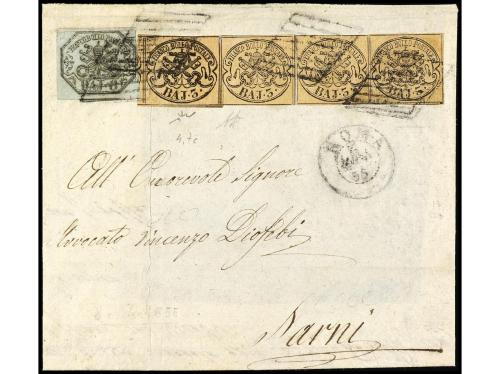 FRANCO BOLLO POSTALE
BAJ. 3. BAJ. 3. BAJ. 3. BAJ. 3.
ROMA
55
All' Onorevole Signore
Avvocato Vincenzo Diofebi
Narni